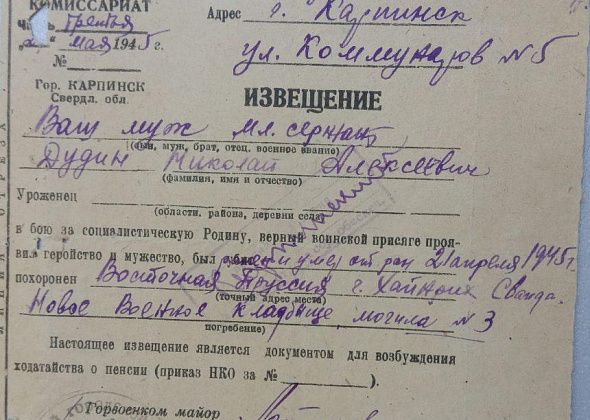 КОМИССАРИАТ
Часть Третья
мая 1945 г.
№
Гор. КАРПИНСК
Свердл. обл.
Адрес г. Карпинск
ул. Коммунаров №5
ИЗВЕЩЕНИЕ
Ваш муж мл. сержант
(сын, муж, брат, отец, военное звание)
Дудин Николай Алексеевич
(фамилия, имя и отчество)
Уроженец
(области, района, деревни села)
в бою за социалистическую Родину, верный воинской присяге проя-
вил геройство и мужество, был умер от ран 21 апреля 1945 г.
похоронен Восточная Пруссия г. Хайнрих Свалда.
(точный адрес места)
Новое Военное кладбище могила №3
погребение)
Настоящее извещение является документом для возбуждения
ходатайства о пенсии (приказ НКО за №)
Горвоенком майор